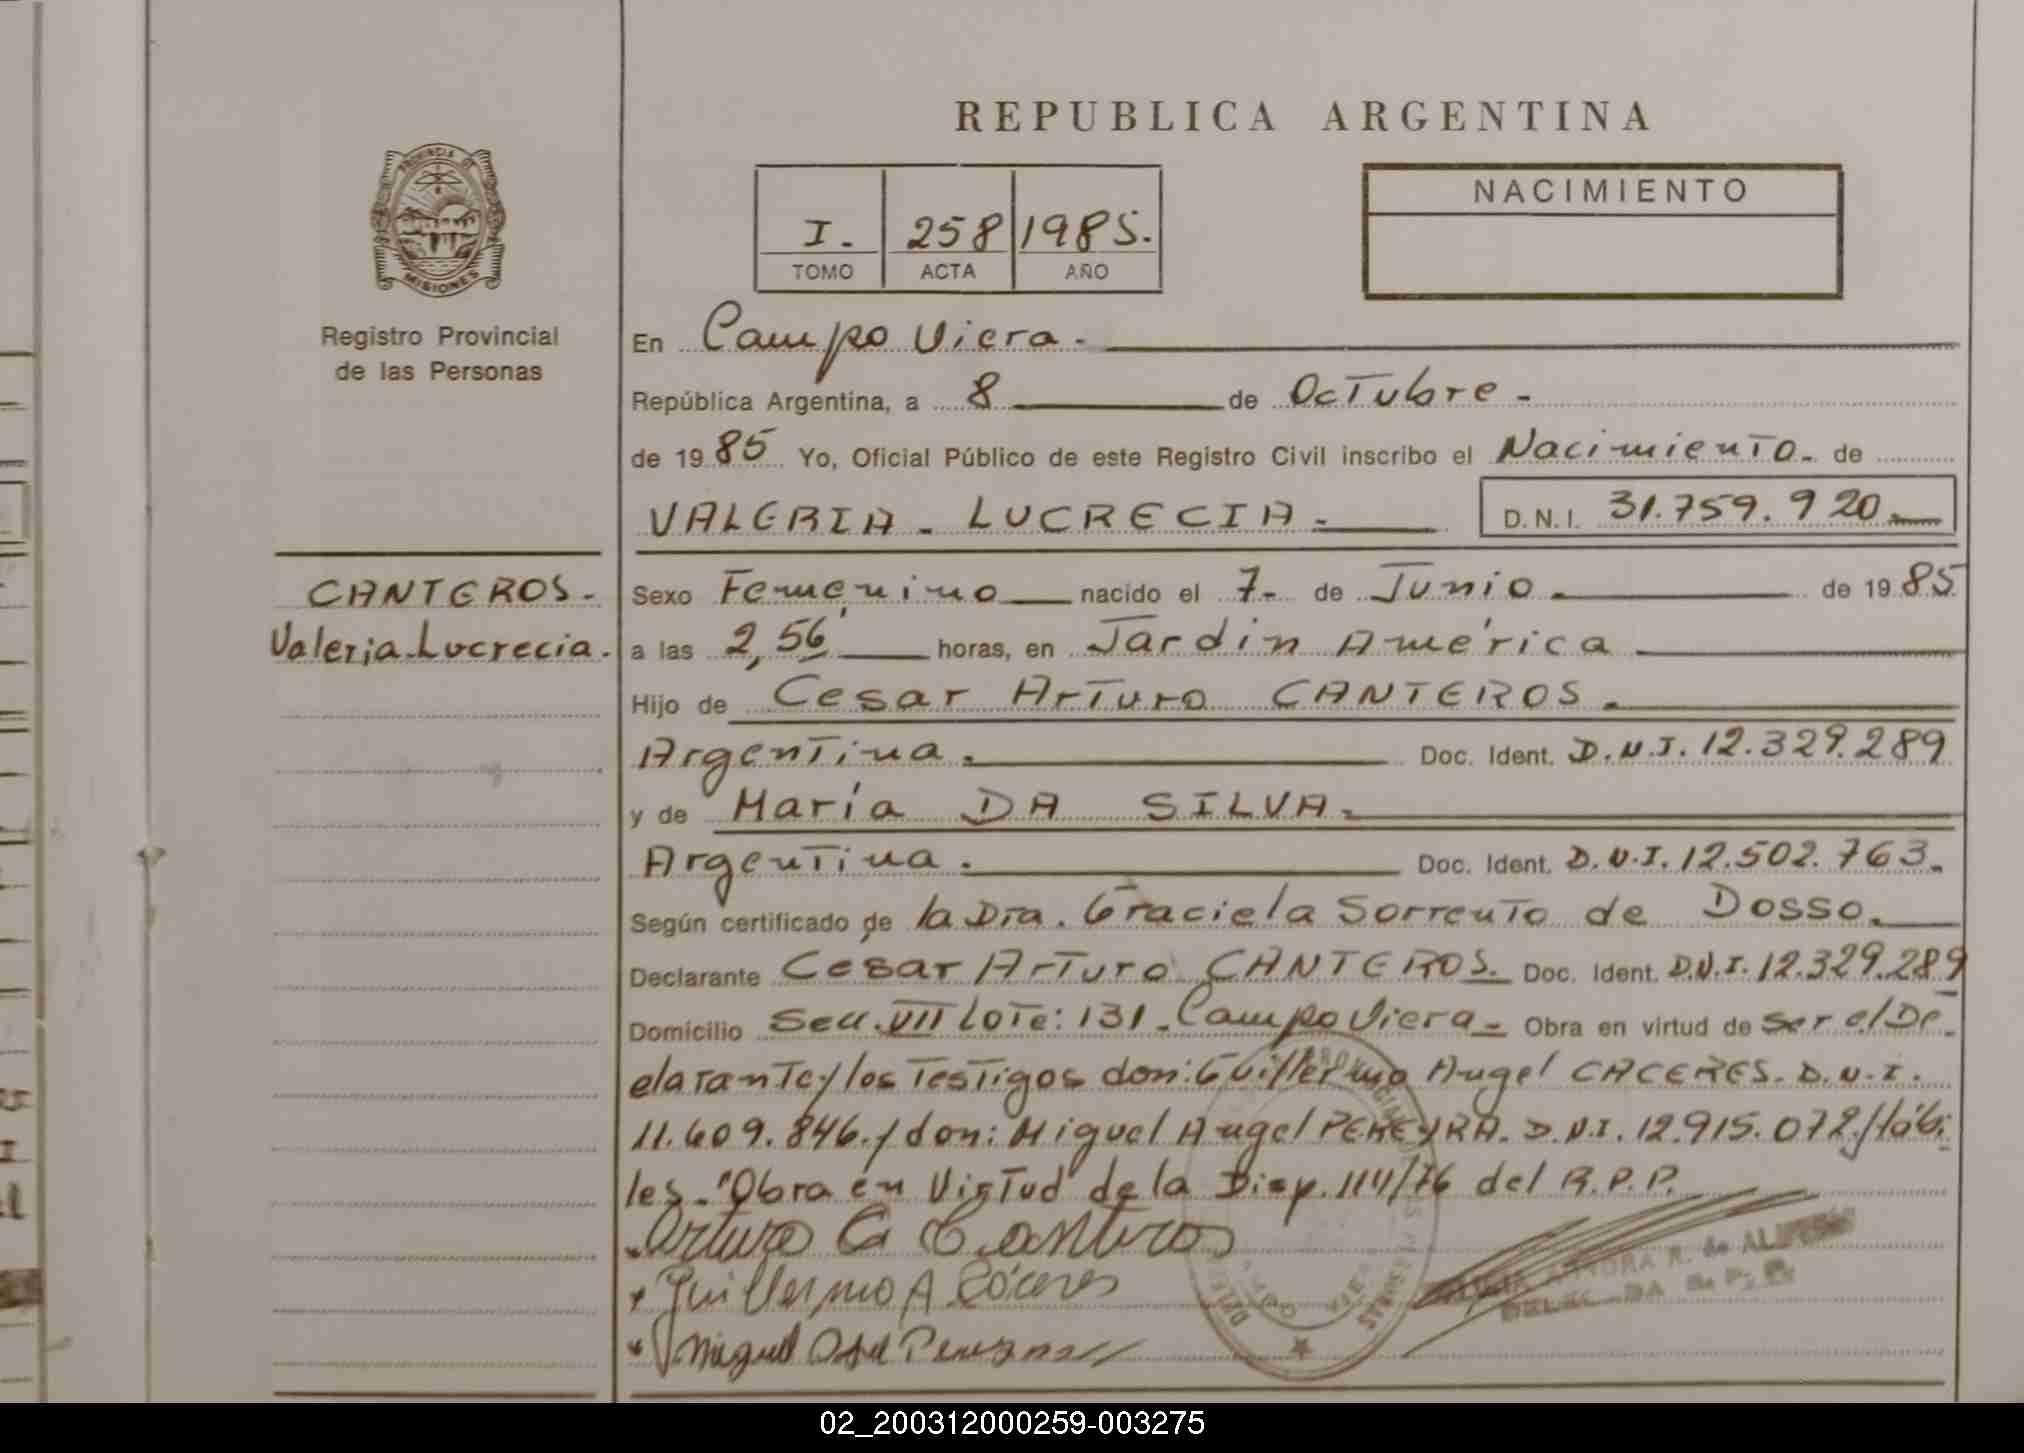 REPUBLICA ARGENTINA
PROVINCIA DE
MISIONES
Registro Provincial
de las Personas
I. 258 1985.
TOMO ACTA AÑO
NACIMIENTO
En Campo Viera.
República Argentina, a 8 de Octubre -
de 1985 Yo, Oficial Público de este Registro Civil inscribo el Nacimiento. de
VALERIA - LUCRECIA - D.N.I. 31.759.920
CANTEROS.
Valeria Lucrecia.
Sexo Femenino nacido el 7- de Junio de 1985
a las 2,56' horas, en Jardin América
Hijo de Cesar Arturo CANTEROS.
Argentina. Doc. Ident. D.N.I. 12.329.289
y de María DA SILVA.
Argentina. Doc. Ident. D.N.I. 12.502.763.
Según certificado de la Dra. Graciela Sorrento de Dosso.
Declarante Cesar Arturo CANTEROS. Doc. Ident. D.N.I. 12.329.289
Domicilio Secc. VII Lote: 131 - Campo Viera - Obra en virtud de ser el De-
clarante y los Testigos don: Guillermo Angel CACERES. D.N.I.
11.609.846. y don: Miguel Angel PEREYRA. D.N.I. 12.915.072. Hábi-
les. Obra en Virtud de la Disp. 111/76 del R.P.P.
Arturo C Canteros
Guillermo A Cáceres
Miguel
R. de
02_200312000259-003275